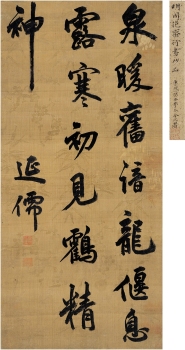 泉暖舊諳龍偃息
露寒初見鶴精
神
延儒
明周延儒行書